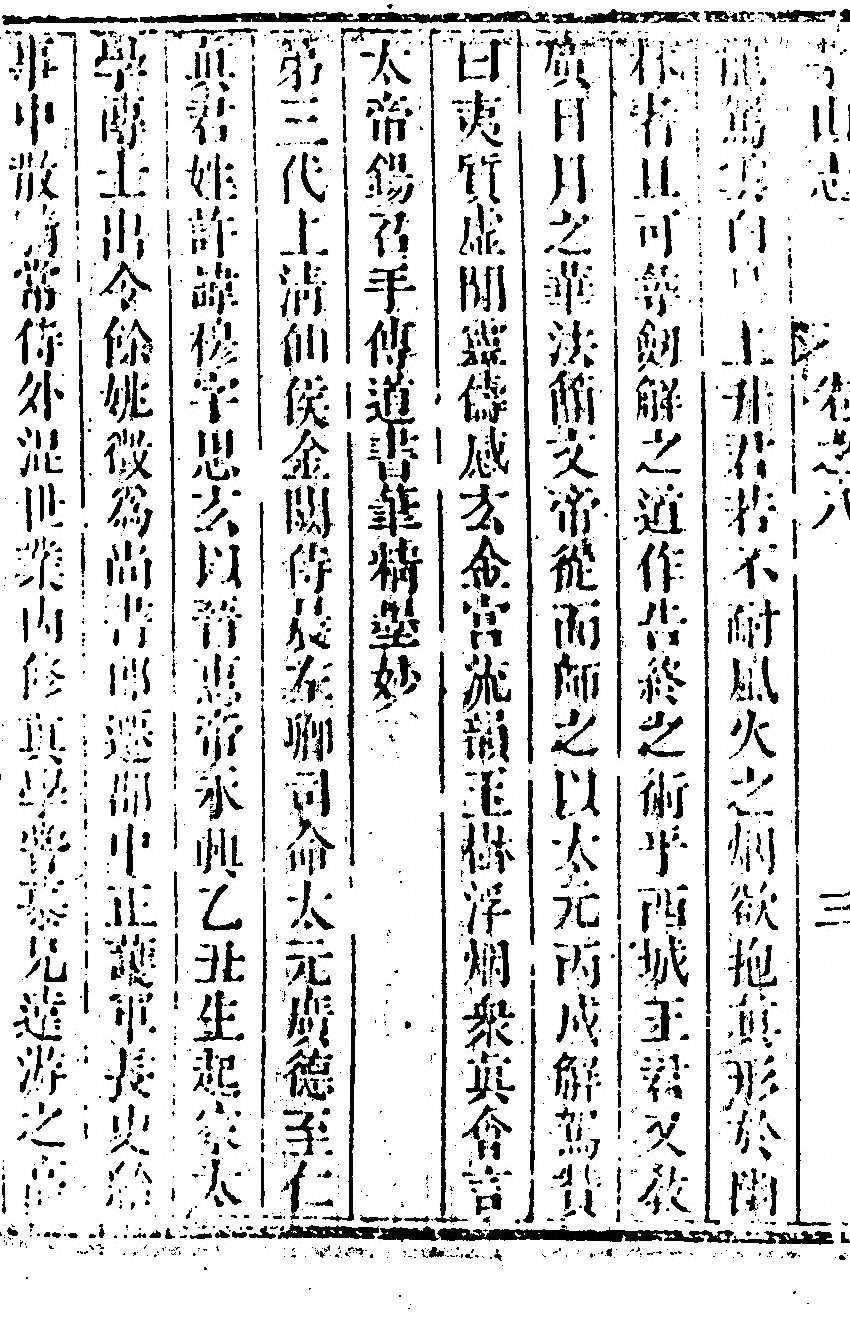 山志 卷之八 三
龍駕雲白日上升君若不耐風火之烟欲抱真形於幽
林者且可尋劍解之道作告終之術乎西城王君又教
廣日月之華法簡文帝從而師之以太元丙戌解駕贊
曰夷質虛閒靈儔感玄金宮流韻玉樹浮烟衆真會言
太帝錫召手傳道書華精瑩妙
第三代上清仙侯金闕侍晨左卿司命太元廣德至仁
真君姓許諱穆字思玄以晉惠帝永興乙丑生起家太
學博士出令餘姚徵為尚書郎遷郡中正護軍長史給
事中散騎常侍外混世業內修真學慕兄遠游之高